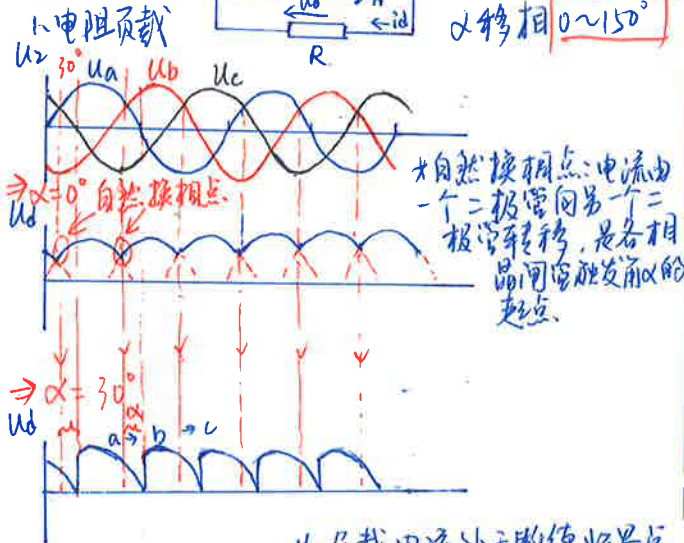 Ud
id
R
1、电阻负载
α移相 0~150°
U2
30°
Ua
Ub
Uc
⇒α=0° 自然换相点
Ud
*自然换相点:电流由
一个二极管向另一个二
极管转移,是各相
晶闸管触发角α的
起点.
⇒α=30°
Ud
α
a→b→c